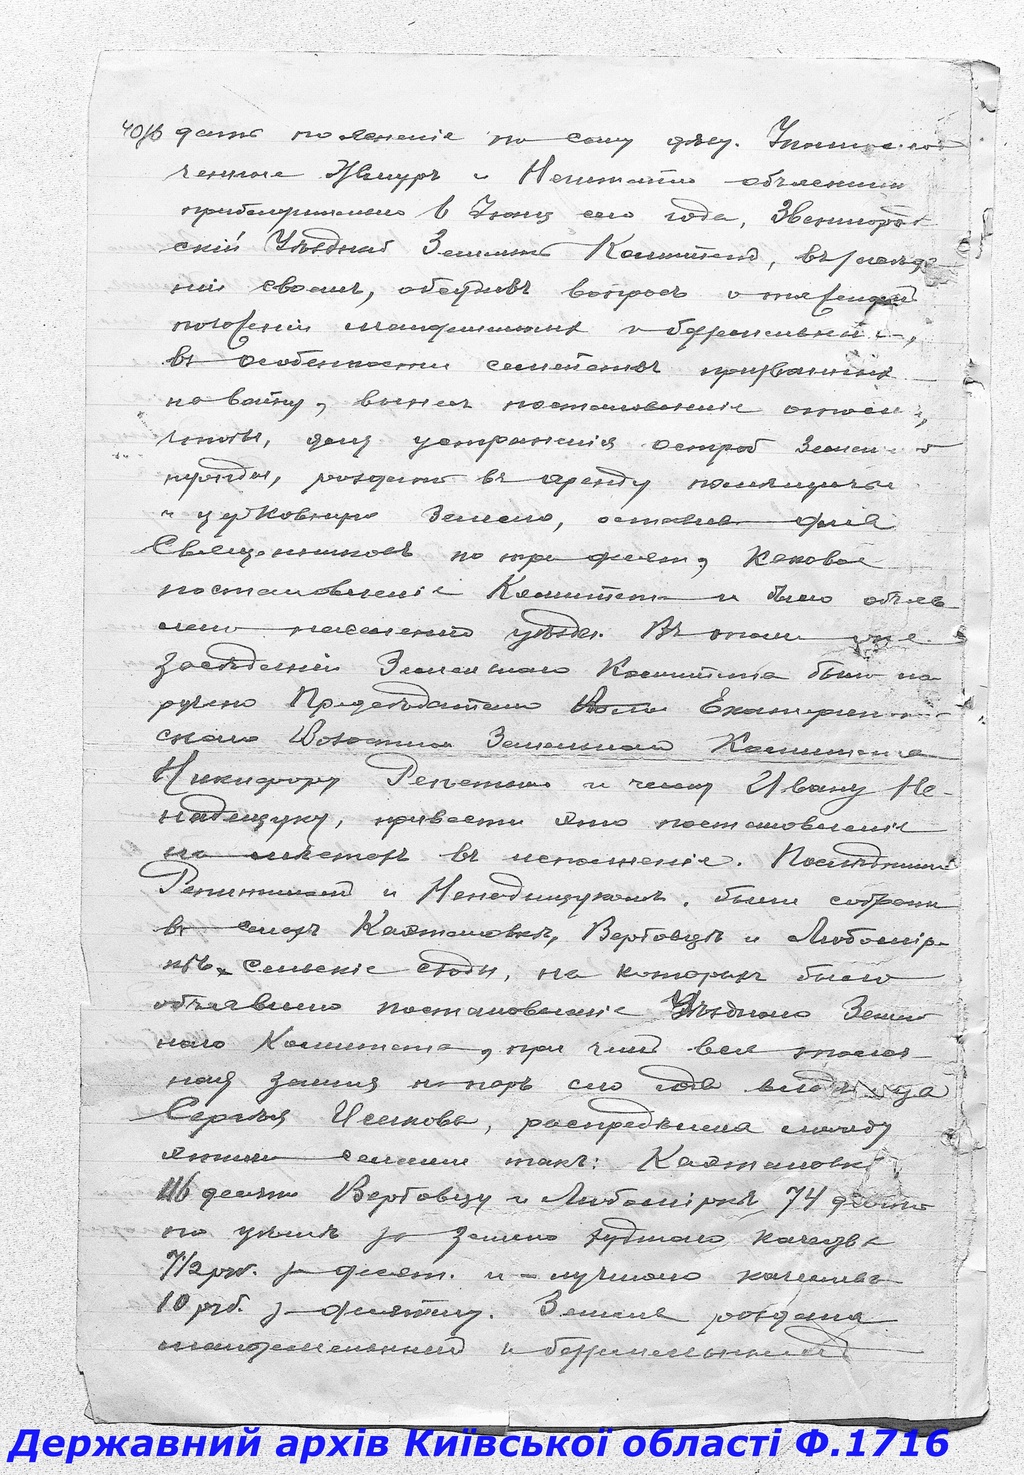 40/б дать пояснение по сему делу. Уполномо-
ченные Жмуръ и Ненита объяснили
приблизительно в Iюнѣ сего года, Звенигород-
скiй Уѣздный Земельный Комитетъ, въ засѣда-
нiи своемъ, обсудивъ вопросъ о тяжеломъ
положенiи малоземельныхъ и безземельныхъ,
въ особенности семействъ призванныхъ
на войну, вынесъ постановленiе
чтобы, для устраненiя острой Земельной
нужды, раздать въ аренду помѣщичью
и церковную Землю, оставивъ для
Священниковъ по три десят, каковое
постановленiе Комитета и было объяв-
лено населенiю уѣзда. Въ томъ же
засѣданiи Земельнаго Комитета было по-
ручено Предсѣдателю Екатерино
скаго Волостного Земельнаго Комитета
Никифору Репетию и члену Ивану Не-
надищуку, привести это постановленiе
на мѣстахъ въ исполненiе. Послѣдними
и Ненадищукомъ, были собраны
въ селахъ Каэтановкѣ, Вербовцѣ и Любомiр-
кѣ сельскiе сходы, на которыхъ было
объявлено постановленiе Уѣзднаго Земель
наго Комитета, при чемъ вся
ная земля сего года владѣльца
Сергѣя Исакова, распредѣлена между
этими селами такъ: Каэтановкѣ
116 десят Вербовцу и Любомiркѣ 74 десят
по цѣнѣ за землю худшаго качества
7 1/2 руб. за десят. и – лучшаго качества
10 руб. за десятину. Земля роздана
малоземельнымъ и безземельнымъ
Державний архів Київської області Ф.1716